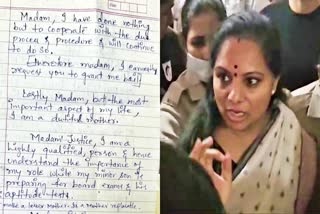 Madam, I have done nothing
but to cooperate with the due
process & procedure & will continue
to do so.
Therefore madam, I earnestly
request you to grant me bail
Lastly Madam, but the most
important aspect of my life,
I am a dutiful mother.
Madam Justice, I am a
highly qualified, person & hence
understand the importance of
my role while my minor son is
preparing for board exams & his
aptitude tests.
a mother replaceable